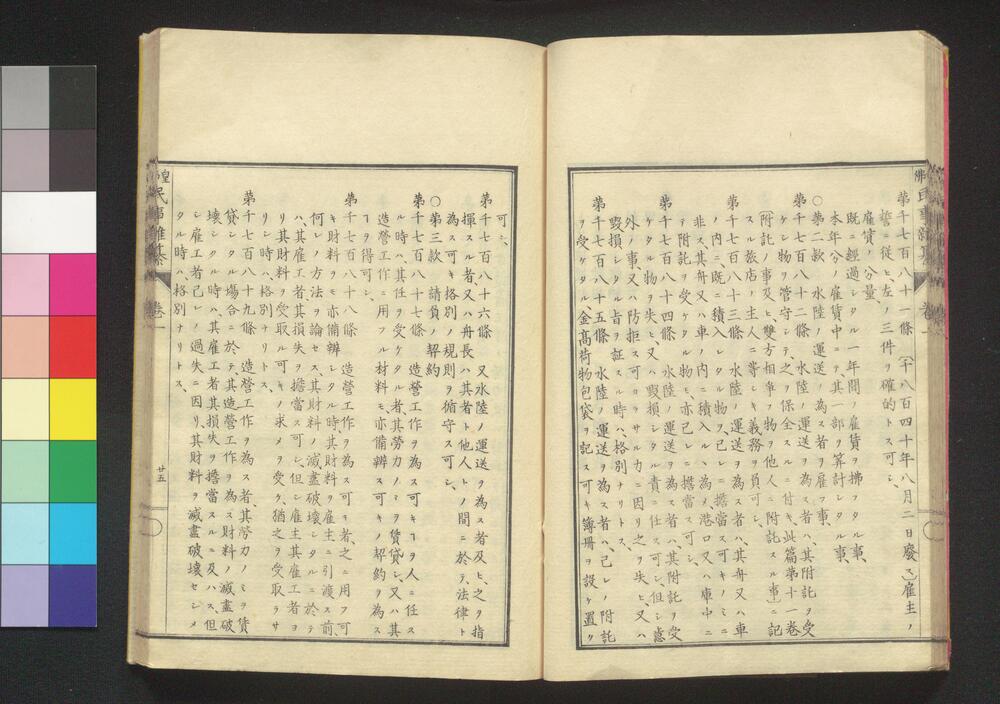 第千七百八十一條 (千八百四十年八月二日廢ス)雇主ノ
誓ニ從ヒ左ノ三件ヲ確的トス可シ、
雇賃ノ分量、
既ニ經過シタル一年間ノ雇賃ヲ拂フタル事、
本年分ノ雇賃中ニテ其一部ヲ算計シタル事、
○第二款 水陸ノ運送ヲ為ス者ヲ雇フ事、
第千七百八十二條 水陸ノ運送ヲ為ス者ハ、其附託ヲ受
ケシ物ヲ管守シテ之ヲ保全スルニ付キ、此篇第十一卷
附託ノ事及ヒ雙方相爭フ物ヲ他人ニ附託スル事ニ記
スル旅店ノ主人ニ等シキ義務ヲ負可シ、
第千七百八十三條 水陸ノ運送ヲ為ス者ハ、其舟又ハ車
ノ内ニ既ニ積入レタル物ヲ己レニ擔當ス可キノミニ
非ス、其舟又ハ車ノ内ニ積入ル丶為メ港口又ハ庫中ニ
テ附託ヲ受ケタル物モ、亦己レニ擔當ス可シ、
第千七百八十四條 水陸ノ運送ヲ為ス者ハ、其附託ヲ受
ケタル物ヲ失ヒ、又ハ毀損シタル責ニ任ス可シ、但シ意
外ノ事、又ハ防拒ス可ロラサル力ニ因リ之ヲ失ヒ、又ハ
毀損シタル旨ヲ証スル時ハ、格別ナリトス、
第千七百八十五條 水陸ノ運送ヲ為ス者ハ、己レノ附託
ヲ受ケタル金髙荷物包袋ヲ記ス可キ簿冊ヲ設ケ置ク
可シ、
第千七百八十六條 又水陸ノ運送ヲ為ス者及ヒ之ヲ指
揮スル者、又ハ舟長ハ其者ト他人トノ間ニ於テ、法律ト
為ス可キ格別ノ規則ヲ循守ス可シ、
○第三款 請負ノ契約
第千七百八十七條 造營工作ヲ為ス可キヿヲ人ニ任ス
ル時ハ、其任ヲ受ケタル者其勞力ノミヲ賃貸シ、又ハ其
造營工作ニ用フル材料モ、亦備辨ス可キノ契約ヲ為ス
ヿヲ得可シ、
第千七百八十八條 造營工作ヲ為ス可キ者、之ニ用フ可
キ財料ヲモ亦備辨シタル時、其財料ヲ雇主ニ引渡ス前
何レノ方法ヲ論セス、其財料ノ滅盡破壊シタルニ於テ
ハ、其雇工者其損失ヲ擔當ス可シ、但シ雇主其雇工者ヨ
リ其財料ヲ受取ル可キノ求メヲ受ケ、猶之ヲ受取ラサ
リシ時ハ、格別ナリトス、
第千七百八十九條 造營工作ヲ為ス者、其勞力ノミヲ賃
貸シタル場合ニ於テ、其造營工作ヲ為ス財料ノ滅盡破
壊シタル時ハ、其雇工者其損失ヲ擔當スルニ及ハス、但
シ雇工者己レノ過失ニ因リ其財料ヲ滅盡破壊セシメ
タル時ハ、格別ナリトス、
卷一
廿五